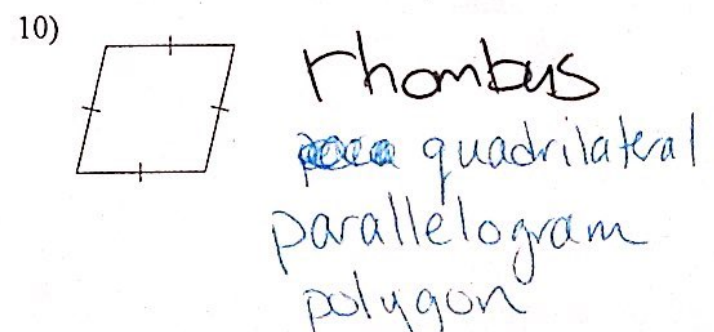 10)
rhombus
quadrilateral
parallelogram
polygon